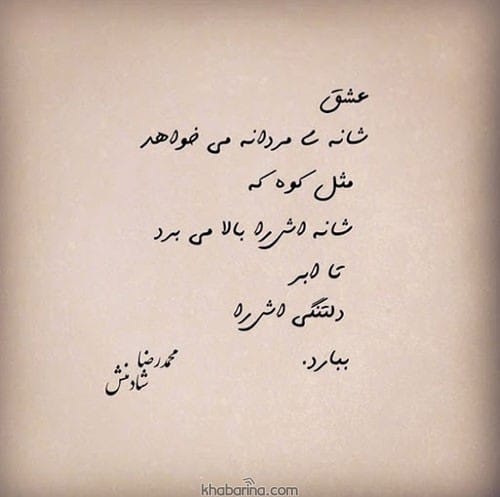 عشق
شانه ے مردانه می خواهد
مثل کوه که
شانه اش را بالا می برد
تا ابر
دلتنگی اش را
ببارد.
محمدرضا
شادمنش
khabarina.com